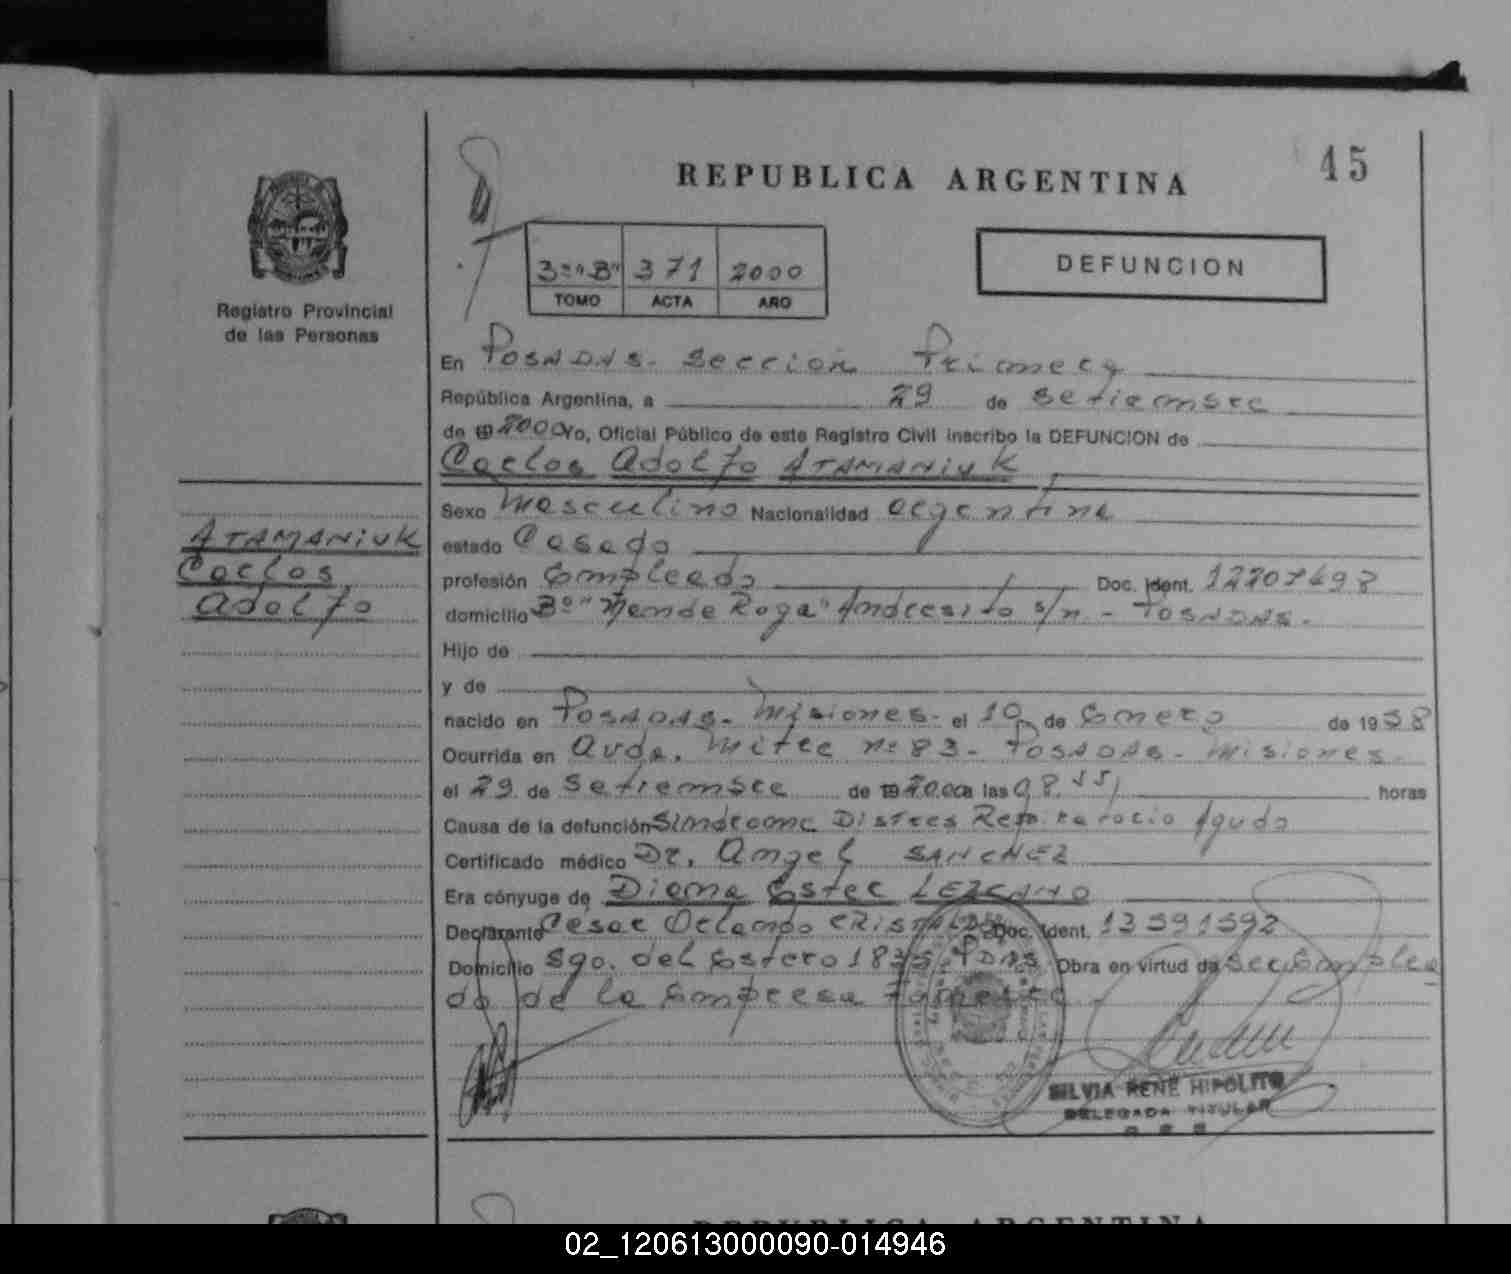 45
REPUBLICA ARGENTINA
DEFUNCION
3º "B" 371 2000
TOMO ACTA AÑO
Registro Provincial
de las Personas
En Posadas - Sección Primera
República Argentina, a 29 de Setiembre
de 19 2000 Yo, Oficial Público de este Registro Civil inscribo la DEFUNCION de
Carlos Adolfo ATAMANIUK
Sexo Masculino Nacionalidad argentina
ATAMANIUK
Carlos
Adolfo
estado Casado
profesión Empleado Doc. Ident. 12207498
domicilio Bº "Ñande Roga" Andresito s/n. - Posadas.
Hijo de
y de
nacido en Posadas - Misiones - el 10 de Enero de 1958
Ocurrida en Avda. Mitre nº 83 - Posadas - Misiones.
el 29 de Setiembre de 19 2000 a las 08.55 horas
Causa de la defunción Síndrome Distres Respiratorio Agudo
Certificado médico Dr. Angel SANCHEZ
Era cónyuge de Diana Ester LEZCANO
Declarante César Orlando CRISTALDO Doc. Ident. 13591592
Domicilio Sgo. del Estero 1835 Pdas Obra en virtud de ser Emplea
do de la Empresa
SILVIA RENÉ HIPOLITO
DELEGADA TITULAR
REPUBLICA ARGENTINA
02_120613000090-014946